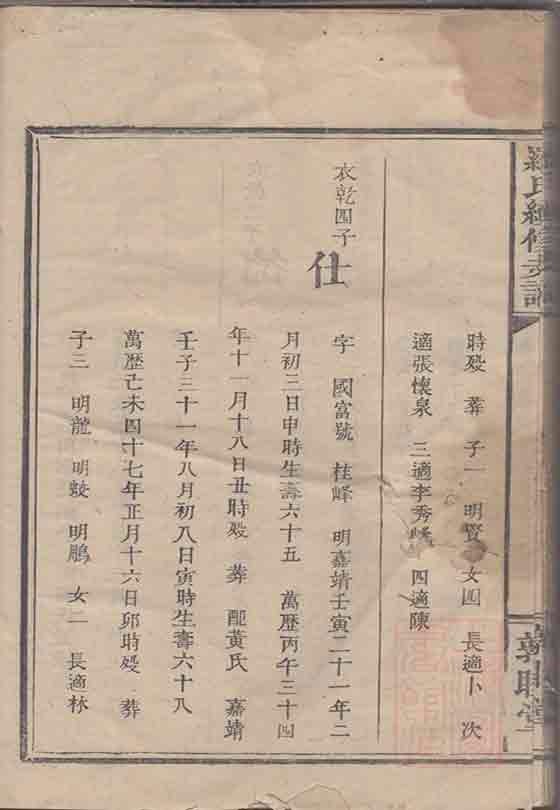 羅氏續修支譜
敦睦堂
時殁 葬 子一 明賢 女四 長適卜 次
適張懷泉 三適李秀峰 四適陳
衣乾四子
仕
字 國富號 桂峰 明嘉靖壬寅二十一年二
月初三日申時生壽六十五 萬歷丙午三十四
年十一月十八日丑時殁 葬 配黃氏 嘉靖
壬子三十一年八月初八日寅時生壽六十八
萬歷己未四十七年正月十六日卯時殁 葬
子三 明龍 明蛟 明鵬 女二 長適林